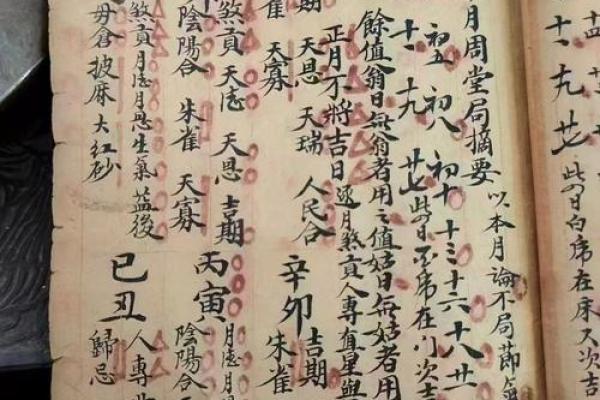 十一 十九 廿七 此日白席在床又次吉
月周堂局摘要 以本月論不局節氣
初五 初八 初十 十三 十六 十八 廿
十一 十九 廿七 此日不席在门次吉
餘值翁日無翁者用之值姑日無姑者用
正月不將吉日 逐月煞貢人專直星與
天恩 天瑞 人民合
辛卯 吉期
雀 天寡
朱雀
煞貢 天德 天恩 吉期
丙寅 月德月
陰陽合 朱雀 天寡
陰陽合
煞貢月德月恩生氣益後
己丑 人專
毋倉 披麻 大红砂
歸忌